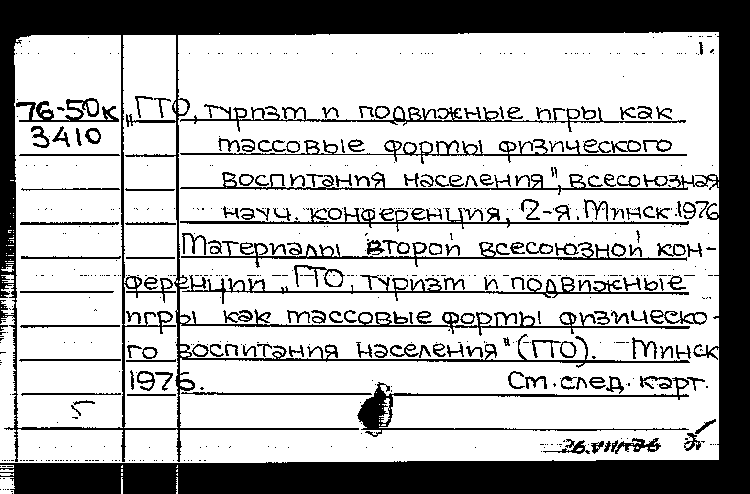 1.
76-50к „ГТО, туризм и подвижные игры как
3410 массовые формы физического
воспитания населения", всесоюзная
науч. конференция, 2-я. Минск 1976
Материалы второй всесоюзной кон-
ференции „ГТО, туризм и подвижные
игры как массовые формы физическо-
го воспитания населения" (ГТО). Минск
1976. См. след. карт.
5
26.VIII-76